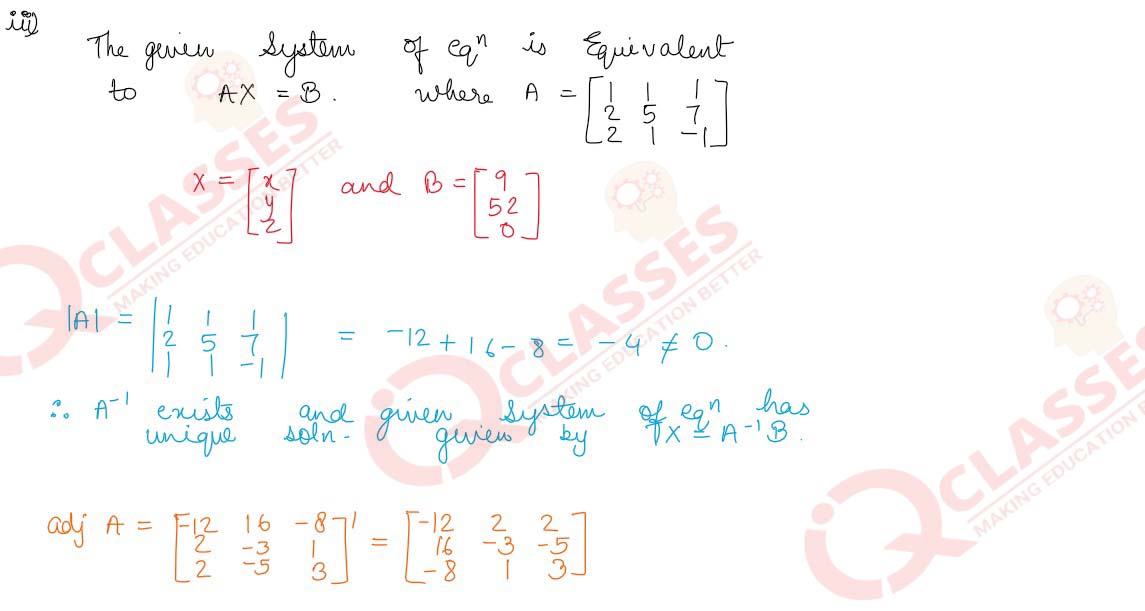 iii)
The given System of eqⁿ is Equivalent
to AX = B. where A = [1 1 1
2 5 7
2 1 -1]
X = [x
y
z] and B = [9
52
0]
|A| = |1 1 1
2 5 7
1 1 -1| = -12 + 16 - 8 = -4 ≠ 0.
∴ A⁻¹ exists and given system of eqⁿ has
unique soln- given by X = A⁻¹B.
adj A = [-12 16 -8
2 -3 1
2 -5 3]' = [-12 2 2
16 -3 -5
-8 1 3]
CLASSES
MAKING EDUCATION BETTER
CLASSES
MAKING EDUCATION BETTER
CLASSES
MAKING EDUCATION